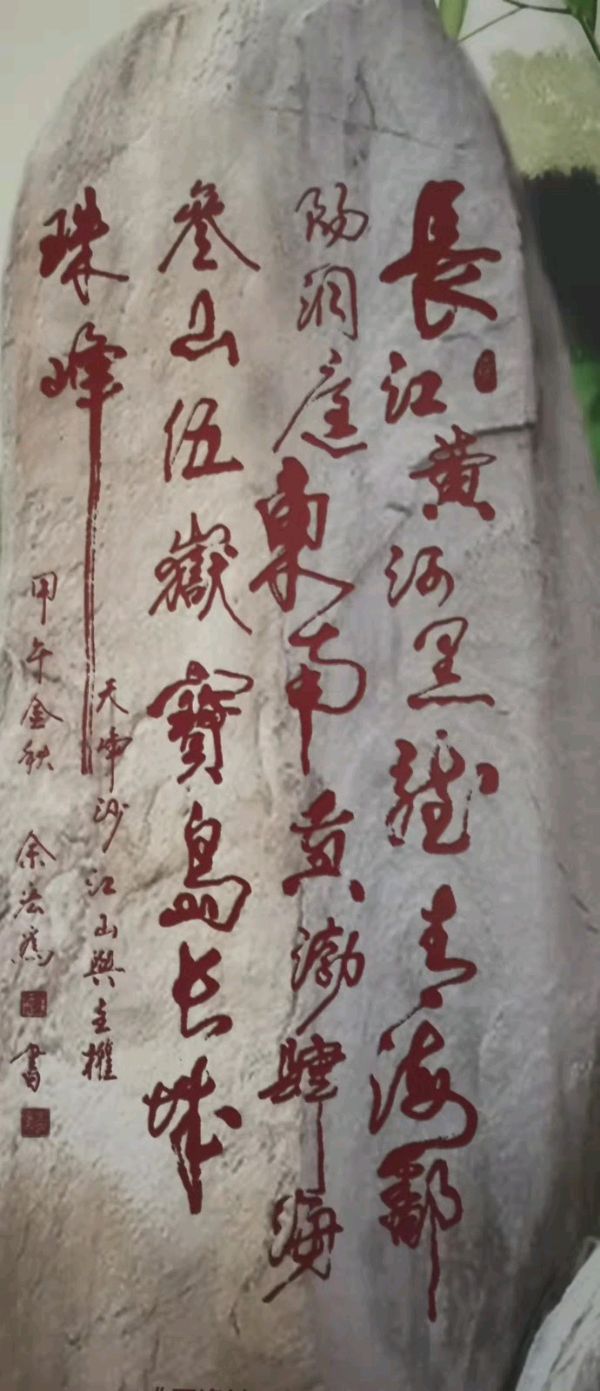 長江黄河黑龍青海鄱
陽洞庭東南黄渤肆海
叁山伍嶽寶島长城
珠峰
天净沙江山與主權
甲午金秋 余宏 書